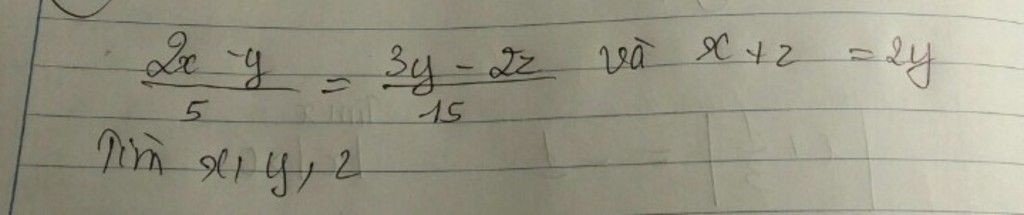 2x - y / 5 = 3y - 2z / 15 và x + z = 2y
Tìm x, y, z